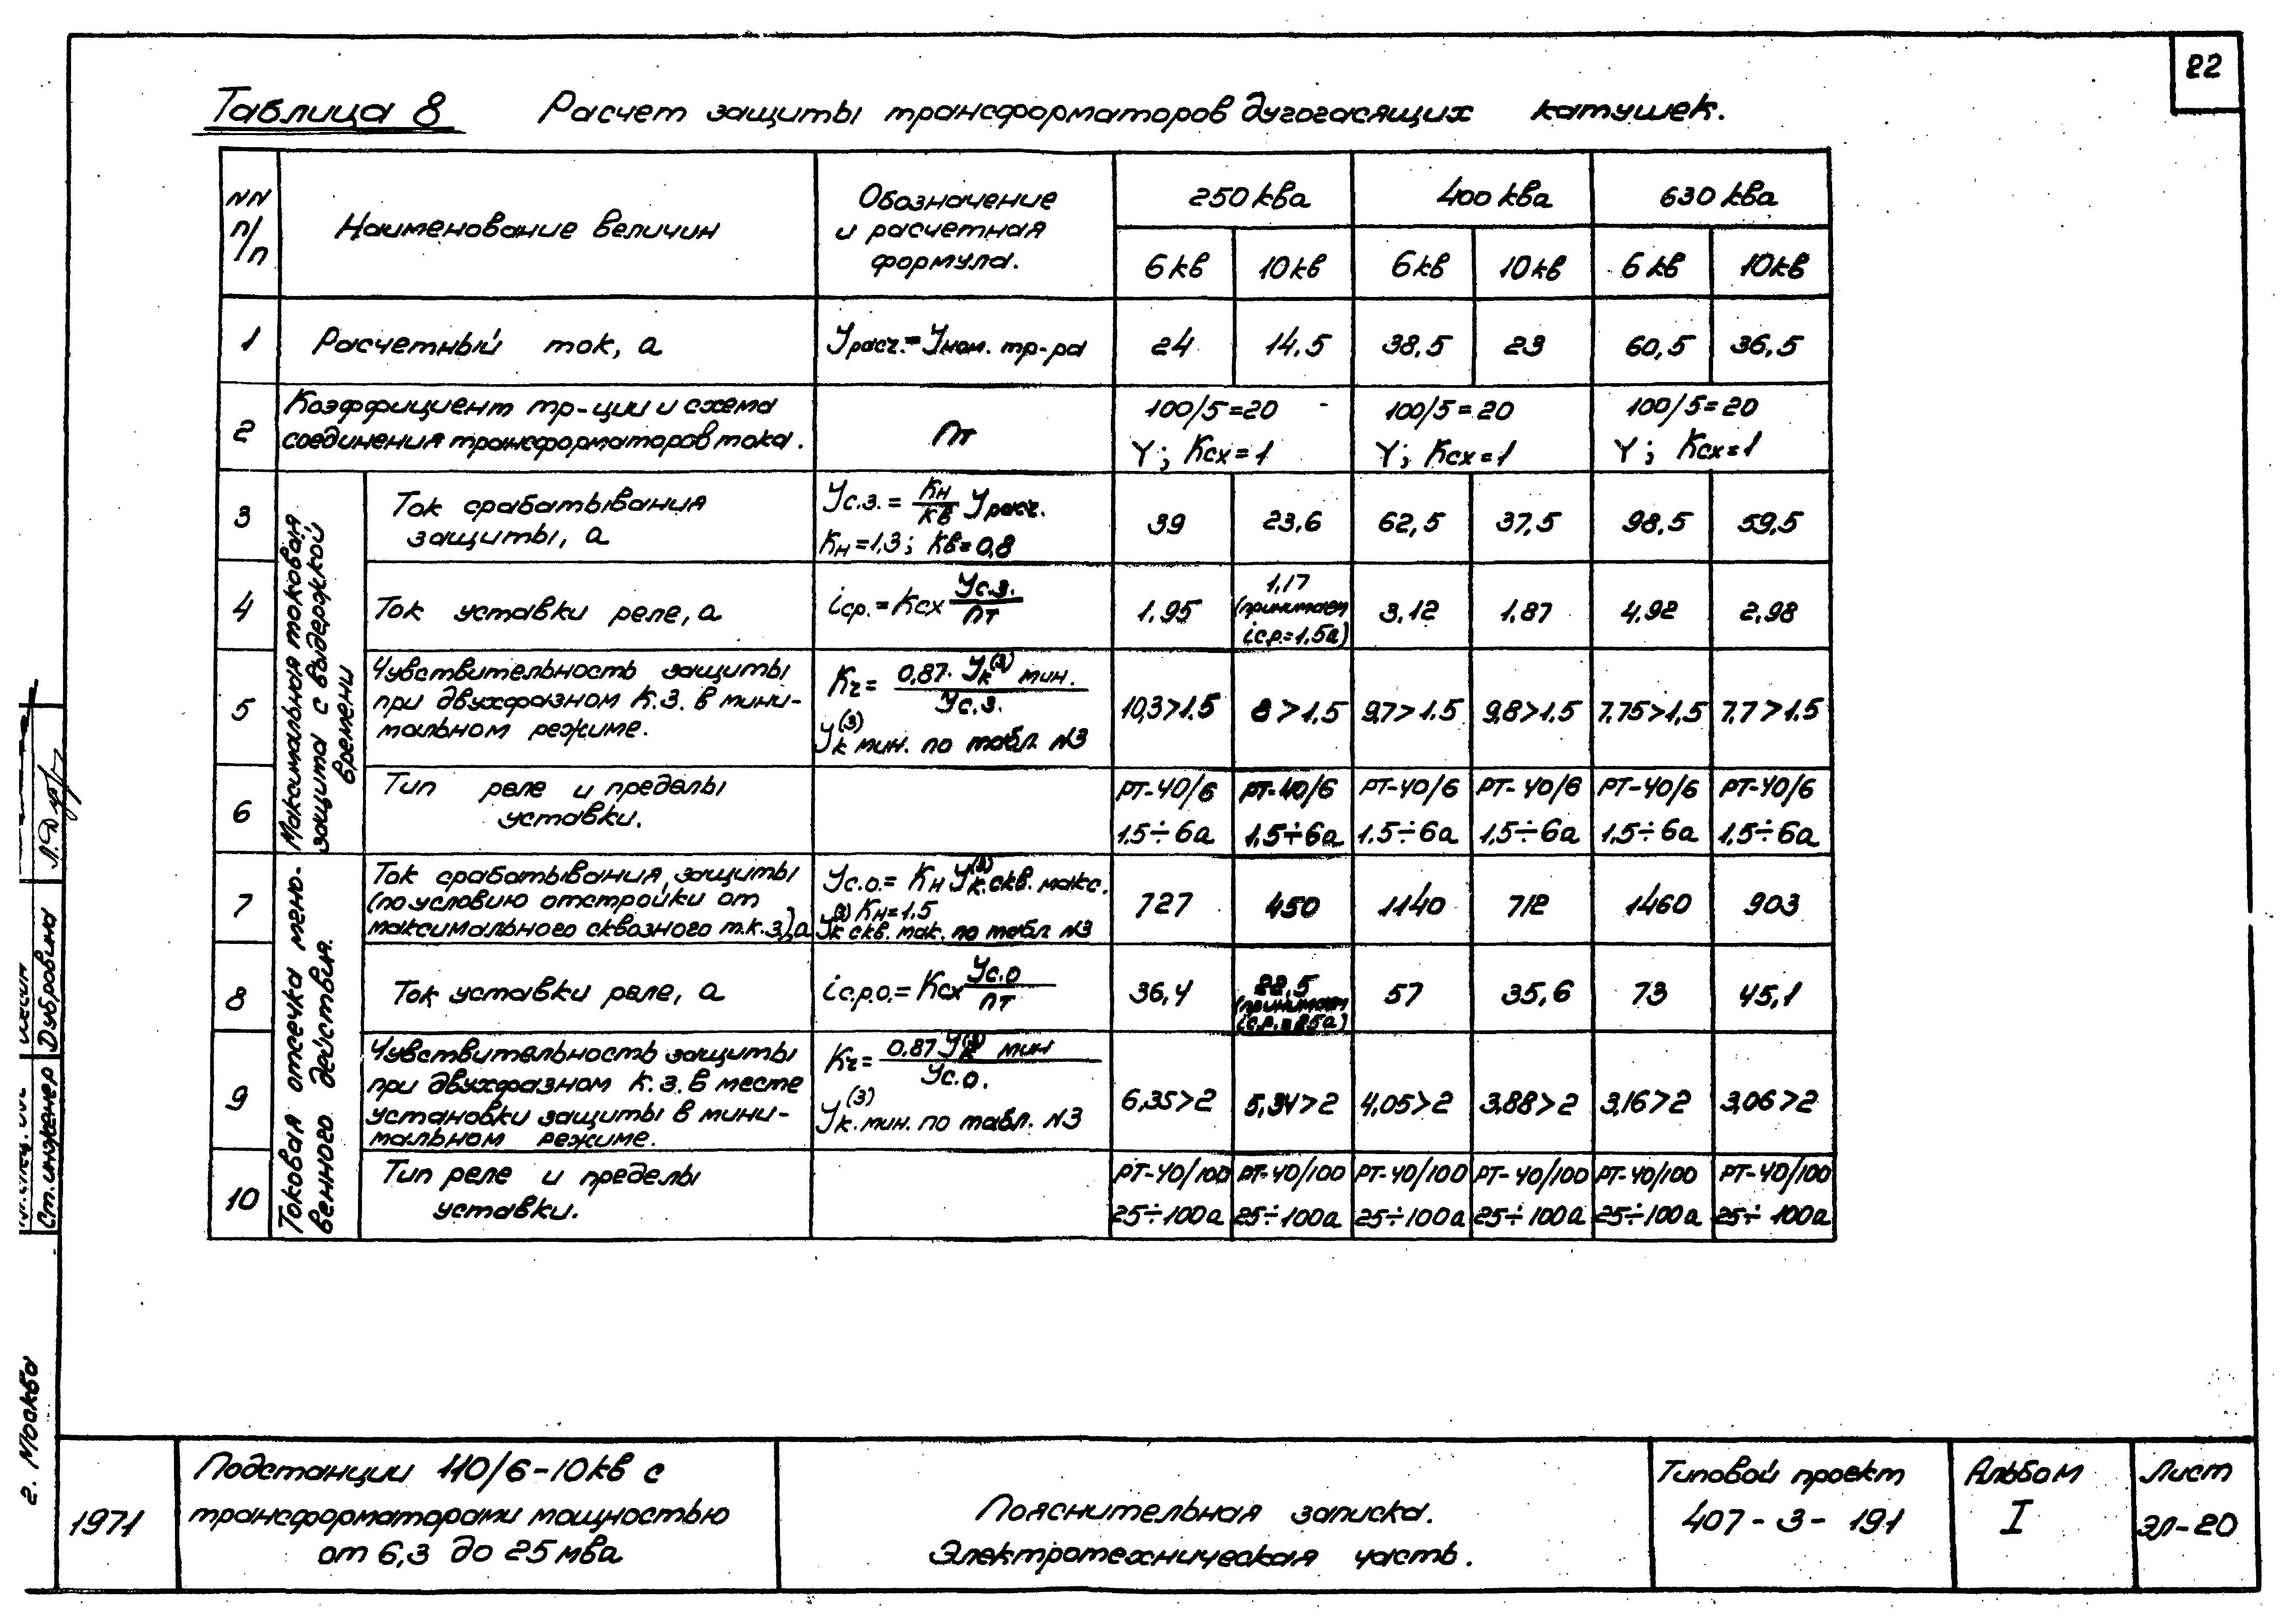 22
Таблица 8 Расчет защиты трансформаторов дугогасящих катушек.
NN п/п
Наименование величин
Обозначение
и расчетная
формула.
250 ква 400 ква 630 ква
6 кв 10 кв 6 кв 10 кв 6 кв 10 кв
1 Расчетный ток, а Iрасч.=Iном. тр-ра 24 14,5 38,5 23 60,5 36,5
2 Коэффициент тр-ции и схема
соединения трансформаторов тока.
nт
100/5=20 100/5=20 100/5=20
Y; Kсх=1 Y; Kсх=1 Y; Kсх=1
Максимальная токовая
защита с выдержкой
времени
3 Ток срабатывания
защиты, а
Iс.з.= Kн/Kв Iрасч.
Kн=1,3; Kв=0,8
39 23,6 62,5 37,5 98,5 59,5
4 Ток уставки реле, а iср.=Kсх Iс.з./nт
1,95 1,17 (принимаем iс.р.=1,5а) 3,12 1,87 4,92 2,98
5 Чувствительность защиты
при двухфазном К.З. в мини-
мальном режиме.
Kч= 0,87·Iк(3) мин./Iс.з.
Iк(3) мин. по табл. N3
10,3>1.5 8>1,5 9,7>1.5 9,8>1,5 7,75>1,5 7,7>1.5
6 Тип реле и пределы
уставки.
РТ-40/6 РТ-40/6 РТ-40/6 РТ-40/6 РТ-40/6 РТ-40/6
1.5÷6а 1,5÷6а 1.5÷6а 1,5÷6а 1,5÷6а 1.5÷6а
Токовая отсечка мгно-
венного действия.
7 Ток срабатывания защиты
(по условию отстройки от
максимального сквозного т.к.з.), а
Iс.о.= Kн Iк(3) скв. макс.
Kн=1.5
Iк(3) скв. мак. по табл. N3
727 450 1140 712 1460 903
8 Ток уставки реле, а iс.р.о.= Kсх Iс.о/nт
36,4 22,5 (принимаем iс.р.=25а) 57 35,6 73 45,1
9 Чувствительность защиты
при двухфазном к.з. в месте
установки защиты в мини-
мальном режиме.
Kч= 0,87 Iк(3) мин/Iс.о.
Iк(3).мин. по табл. N3
6,35>2 5,34>2 4,05>2 3,88>2 3,16>2 3,06>2
10 Тип реле и пределы
уставки.
РТ-40/100 РТ-40/100 РТ-40/100 РТ-40/100 РТ-40/100 РТ-40/100
25÷100а 25÷100а 25÷100а 25÷100а 25÷100а 25÷100а
Ст. инженер Дубровина
г. Москва
1971
Подстанции 110/6-10кв с
трансформаторами мощностью
от 6,3 до 25 мва
Пояснительная записка.
Электротехническая часть.
Типовой проект
407-3-191
Альбом
I
Лист
ЭЛ-20